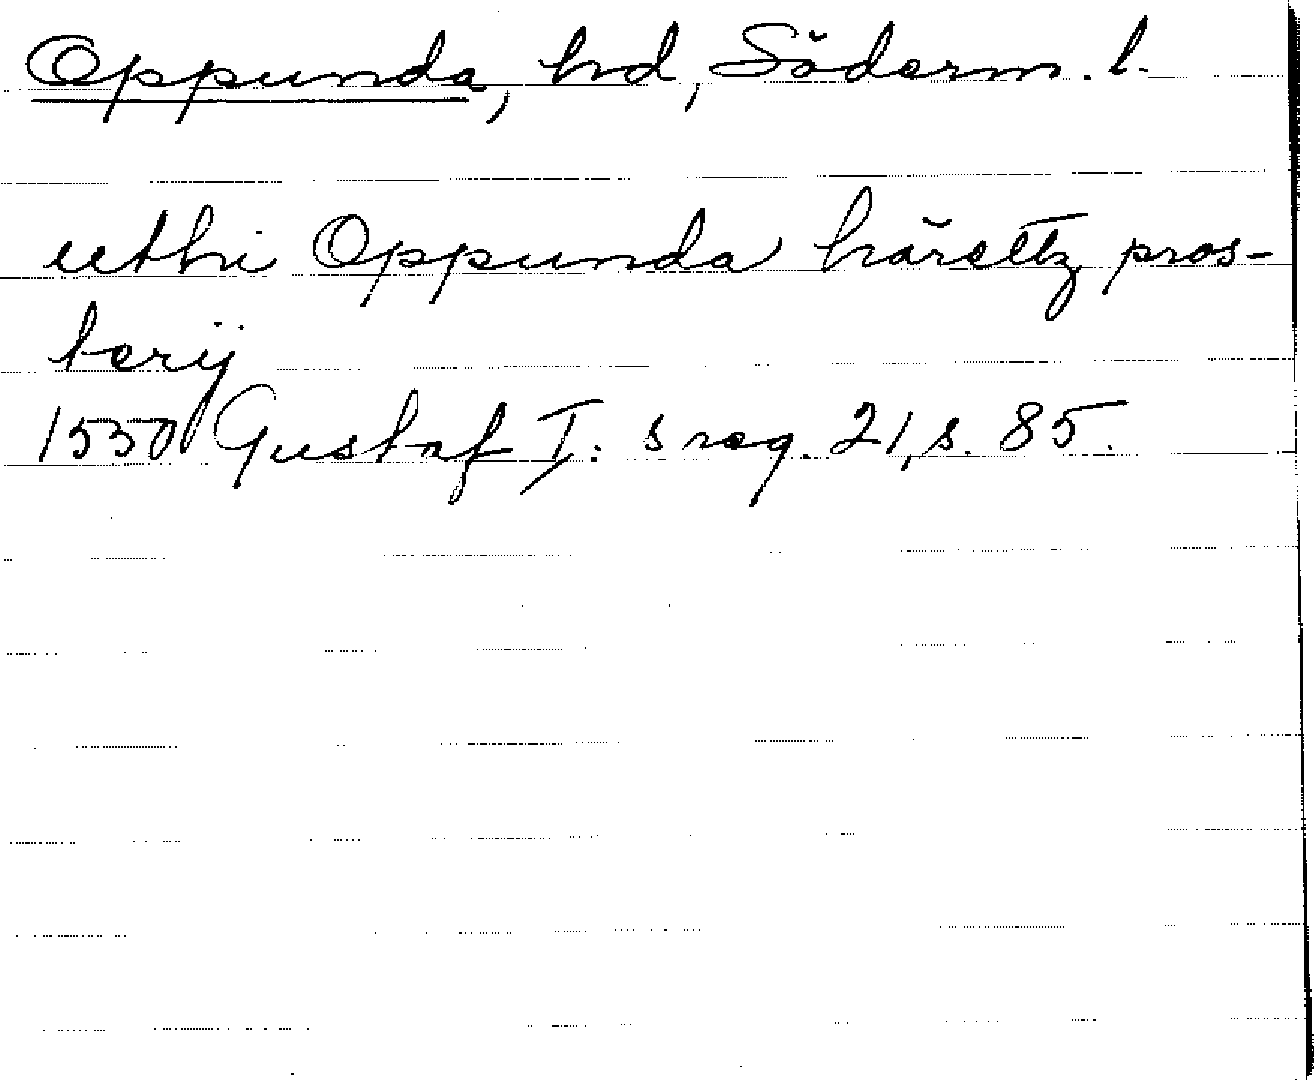 Oppunda, hd, Söderm. l.
uthi Oppunda härettz pros-
terij
1550 Gustaf I:s reg. 21, s. 85.